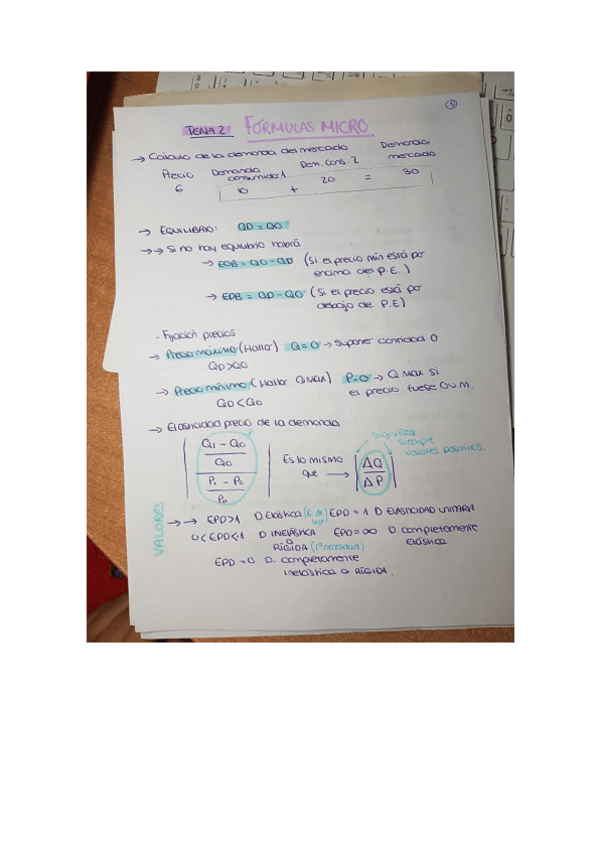 1
TEMA 2: FÓRMULAS MICRO
→ Cálculo de la demanda del mercado
Precio Demanda consumidor 1 Dem. Cons. 2 Demanda mercado
6 10 + 20 = 30
→ EQUILIBRIO: QD = QO
→→ Si no hay equilibrio habrá
→ EOB = QO - QD (Si el precio min está por
encima del P.E.)
→ EDB = QD - QO (Si el precio está por
debajo de P.E)
- Fijación precios
→ Precio máximo (Hallar) Q=0 → Suponer cantidad 0
QD>QO
→ Precio mínimo (Hallar Q MAX) P=0 → Q MAX si
el precio fuese 0 u.m.
QD<QO
→ Elasticidad precio de la demanda
significa
siempre
valores positivos.
| Q1 - Q0 / Q0 / P1 - P0 / P0 | Es lo mismo que → | ΔQ / ΔP |
VALORES
→→ EPD>1 D Elástica (B. de lujo) EPD = 1 D ELASTICIDAD UNITARIA
0<EPD<1 D INELÁSTICA o RÍGIDA (1ª necesidad) EPD=∞ D. completamente elástica
EPD=0 D. completamente
inelástica o RÍGIDA.